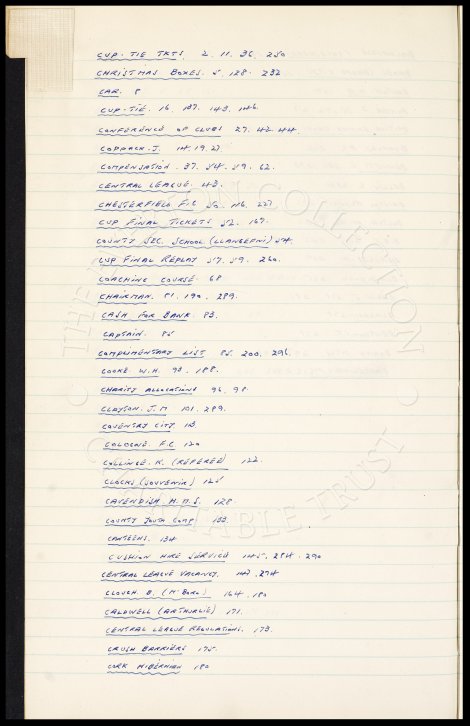 CUP-TIE TKTS 2. 11. 36. 250
CHRISTMAS BOXES. 5. 128. 232
CAR. 8
CUP-TIE. 16. 143. 146.
CONFERENCE OF CLUBS 27. 42. 44.
COPPACK. J. 14. 19. 27
COMPENSATION. 37. 54. 59. 62.
CENTRAL LEAGUE. 43.
CHESTERFIELD F.C 50. 116. 227
CUP FINAL TICKETS 52. 167.
COUNTY SEC. SCHOOL (LLANGEFNI) 54.
CUP FINAL REPLAY 57. 59. 260.
COACHING COURSE. 68
CHAIRMAN. 81. 190. 289.
CASH FOR BANK. 83.
CAPTAIN. 85
COMPLIMENTARY LIST 85. 200. 296.
COOKE. W.H. 92. 188.
CHARITY ALLOCATIONS 96. 98.
CLAYTON. J.M 101. 289.
COVENTRY CITY 113.
COLOGNE. F.C 120
COLLINGE. K. (REFEREE) 122.
CLOCKS (SOUVENIR) 125
CAVENDISH. H.M.S. 128.
COUNTY YOUTH COMP 133.
CANTEENS. 134
CUSHION HIRE SERVICE 145. 284. 290
CENTRAL LEAGUE VACANCY. 147. 274
CLOUGH. B. (M'BORO) 164. 180
CALDWELL (ARTHURLIE) 171.
CENTRAL LEAGUE REGULATIONS. 173.
CRUSH BARRIERS 175.
CORK HIBERNIAN 180
THE COLLECTION
CHARITABLE TRUST